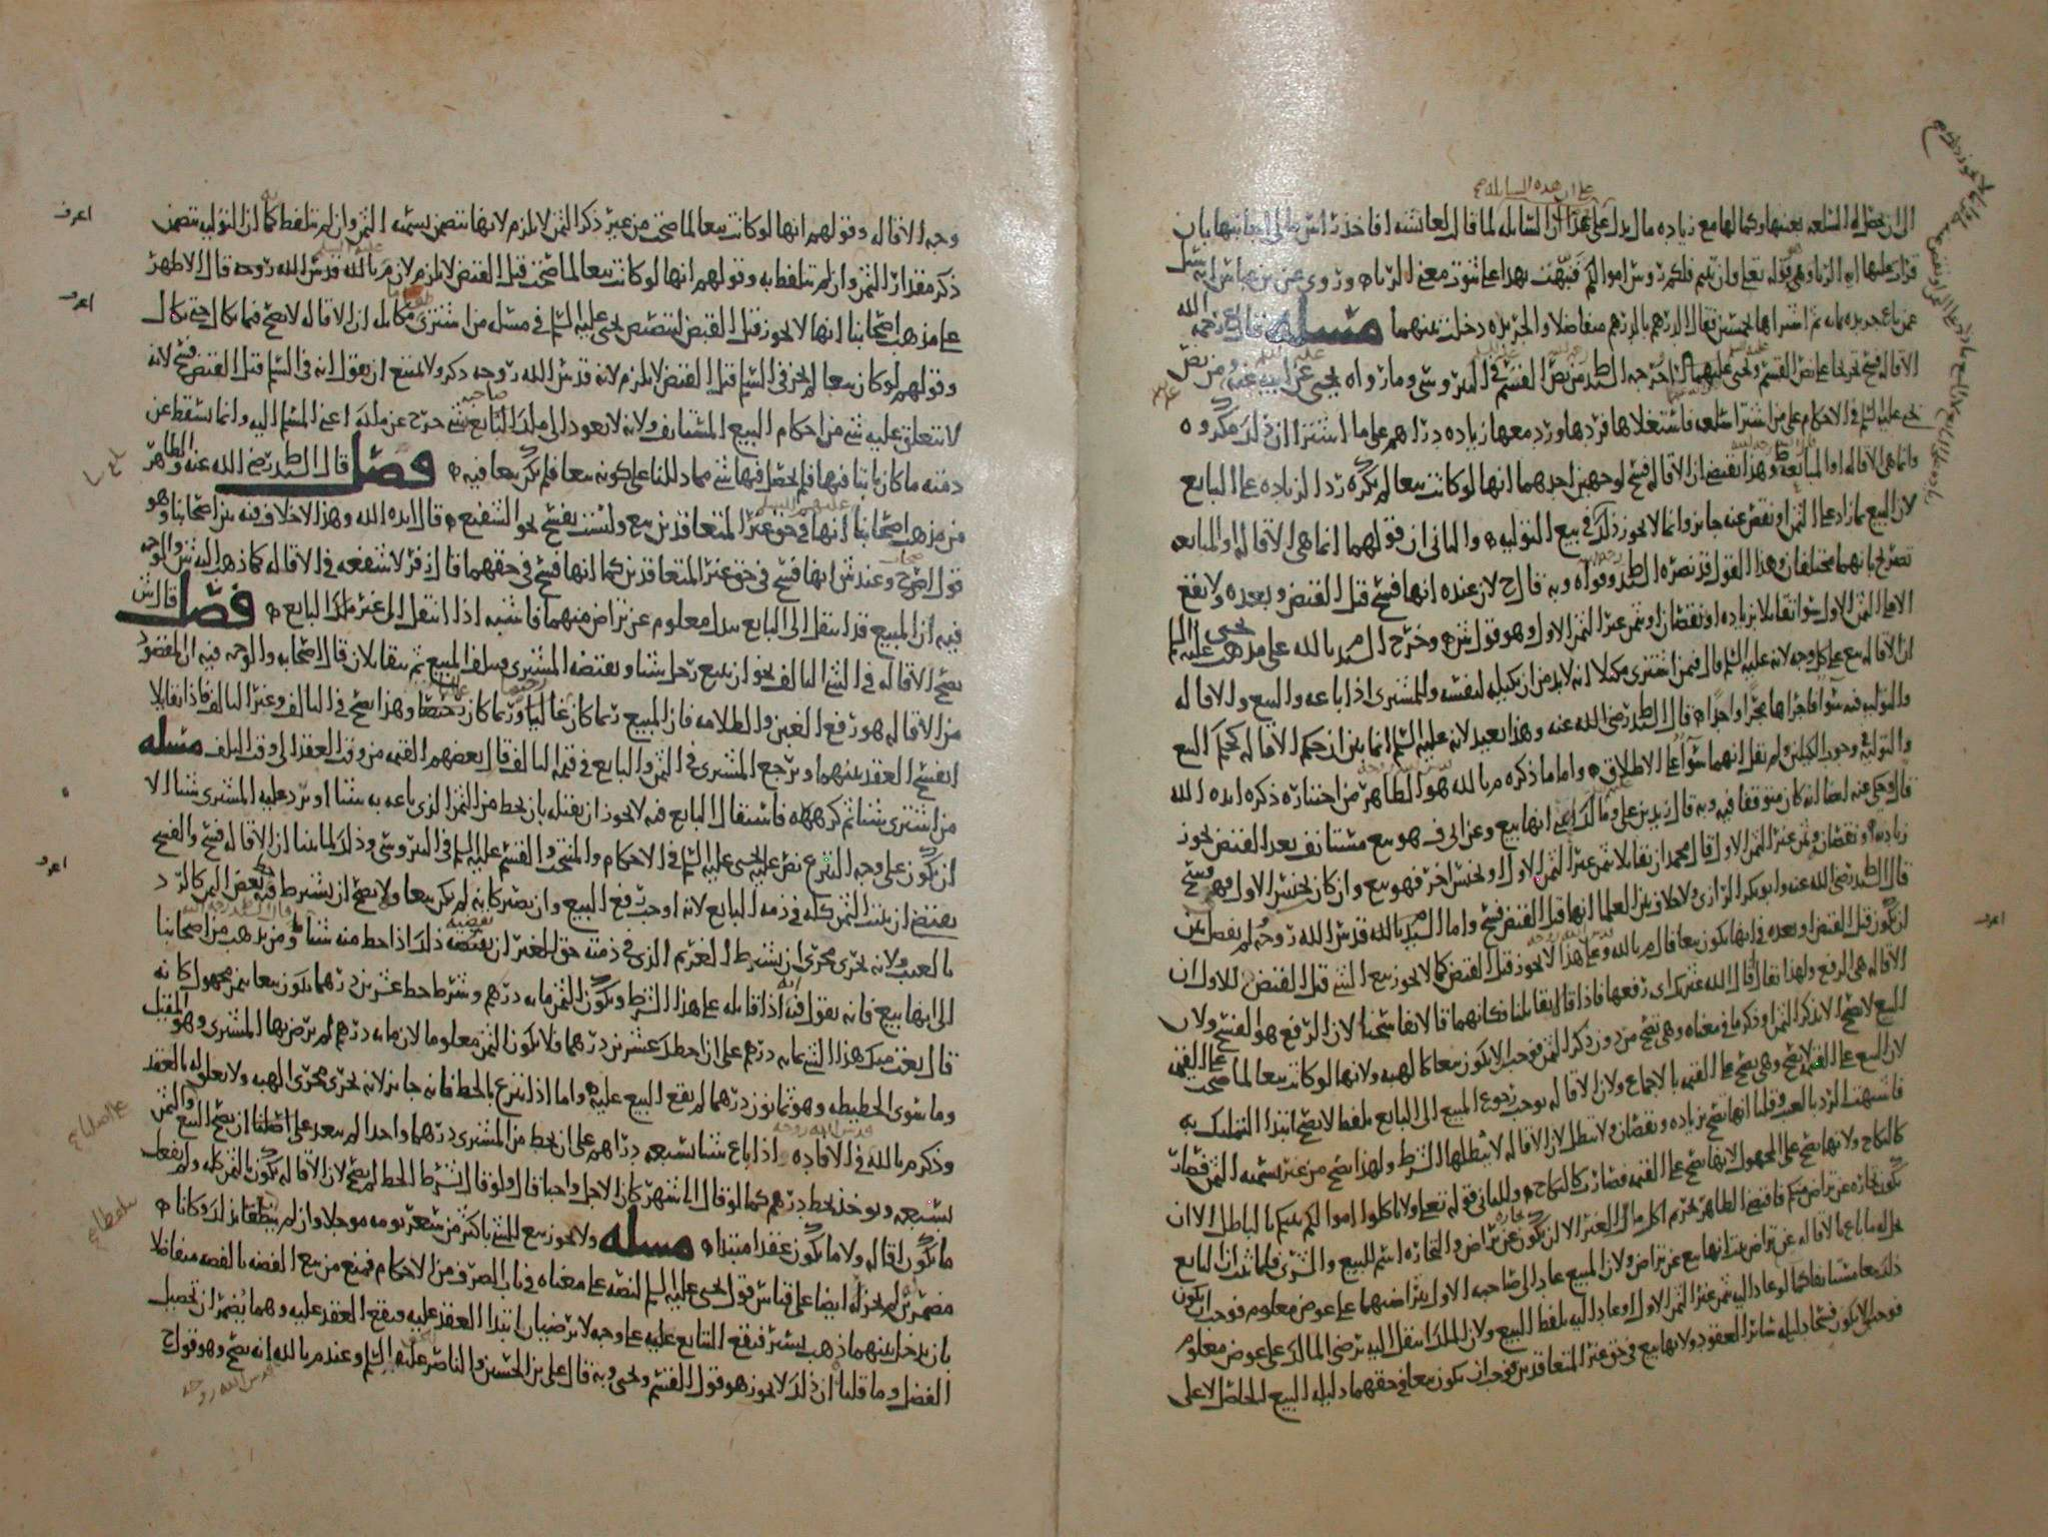 على ان هذه السايله
الى ان يحصل له السلعه بعينها وكمالها مع زياده مال يدل على هذا ان السايله لما قال لها عائشه
قران عليها ايه الربا وهي قوله تعلى وان تبتم فلكم روس اموالكم فنبهت بهذا على ثبوت معنى الربا وروي عن بن عباس انه سئل
عمن باع جريره بمايه ثم اشتراها بخمسين فقال الدرهم بالدرهم متفاضلا والجريره دخلت بينهما مسله قال ع رحمه الله
الاقاله فسخ تخريجا على نص القسم ويحيى عليهما السلم اخرجه السيد ط من نص القسم في النيروسي وما رواه يحيى عن ابيه عنه ومن نص
يحيى عليه السلم في الاحكام على من اشترا سلعه فاستغلاها فردها ورد معها زياده دراهم على ما اشترا ان ذلك مكروه
وانما هي الاقاله او المبايعه وهذا يقتضي ان الاقاله فسخ لوجهين احدهما انها لو كانت بيعا لم يكره رد الزياده على البايع
لان البيع بما زاد على الثمن او نقص عنه جايز وانما لا يجوز ذلك في بيع التوليه والثاني ان قولهما انما هي الاقاله او المبايعه
تصريح بانهما مختلفان وهذا القول قد نصره السيد ط وقواه وبه قال ح لان عنده انها فسخ قبل القبض وبعده ولا يقع
الا على الثمن الاول سوا تقايلا بزياده او نقصان او بثمن غير الثمن الاول وهو قول ش وخرج السيد م بالله على مذهب يحيى عليه السلم
ان الاقاله بيع على كل وجه لانه عليه السلم قال فيمن اشترى مكيلا انه لا بد من ان يكيله لنفسه والمشترى اذا باعه والبيع والاقاله
والتوليه فيه سوا فاجراها مجرا واحدا قال السيد ط رضي الله عنه وهذا بعيد لانه عليه السلم انما بين ان حكم الاقاله كحكم البيع
والتوليه في وجوب الكيل ولم نقل انهما سوآ على الاطلاق واما ما ذكره م بالله هو الظاهر من اختياره ذكره ايده الله
قال وحكى عنه ايضا انه كان متوقفا فيه وبه قال زيد بن علي ومالك اعني انها بيع وعن ابي ف هو بيع مستانف بعد القبض يجوز
زياده ونقصان وثمن غير الثمن الاول قال محمد ان تقايلا بثمن غير الثمن الاول او بجنس اخر فهو بيع وان كان بجنس الاول فهو فسخ
قال السيد ط رضي الله عنه وابو بكر الرازي ولا خلاف بين العلما انها قبل القبض فسخ واما السيد م بالله قدس الله روحه لم يفصل بين
ان يكون قبل القبض او بعده في انها تكون بيعا قال م بالله وعلى هذا لا يجوز قبل القبض كما لا يجوز بيع الشي قبل القبض للاول ان
الاقاله هي الرفع ولهذا يقال اقال الله عثرتك اى رفعها فاذا قالا تقايلنا فكانهما قالا تفاسخنا لان الرفع هو الفسخ ولان
البيع لا يصح الا بذكر الثمن او ذكر ما في معناه وهي تصح من دون ذكر الثمن فوجب ان لا يكون بيعا كالهبه ولانها لو كانت بيعا لما صحت على القيمه
لان البيع على القيمه لا يصح وهي تصح على القيمه بالاجماع ولان الاقاله توجب رجوع المبيع الى البايع بلفظ لا يصح ابتدا التمليك به
فاشبهت الرد بالعيب وقلنا انها تصح بزياده ونقصان ولا تبطل لان الاقاله لا يبطلها الشرط ولهذا تصح من غير تسميه الثمن فصارت
كالنكاح ولانها تصح على المجهول لانها تصح على القيمه فصارت كالنكاح وللثاني قوله تعلى ولا تاكلوا اموالكم بينكم بالباطل الا ان
تكون تجاره عن تراض منكم فاقتضى الظاهر تحريم اكل مال الغير الا ان تكون عن تراض والتجاره اسم للبيع والشرى فلما ثبت ان البايع
يحل له ما باع بالاقاله عن تراض ثبت انها بيع عن تراض ولان المبيع عاد الى صاحبه الاول بتراضيهما على عوض معلوم فوجب ان يكون
ذلك بيعا مستانفا كما لو عاد اليه بثمن غير الثمن الاول او عاد اليه بلفظ البيع ولان الملك انتقل اليه برضى المالك على عوض معلوم
فوجب ان لا يكون فسخا دليله سائر العقود ولانها بيع في حق غير المتعاقدين فوجب ان تكون بيعا في حقهما دليله البيع الحاصل الاعلى
اعرف
وجه الاقاله وقولهم انها لو كانت بيعا لما صحت من غير ذكر الثمن لا يلزم لانها تتضمن تسميه الثمن وان لم يتلفظ كما ان التوليه تتضمن
ذكر مقدار الثمن وان لم يتلفظ به وقولهم انها لو كانت بيعا لما صحت قبل القبض لا يلزم لان م بالله قدس الله روحه قال الاظهر
على مذهب اصحابنا انها لا يجوز قبل القبض لتنصيص يحيى عليه السلم في مسله من اشترى مكايله ان الاقاله لا تصح فيما يكال حتى يكال
وقولهم لو كان بيعا لم يجز في السلم قبل القبض لا يلزم لانه قدس الله روحه ذكر ولا يمتنع ان يقول انه في السلم قبل القبض فسخ لانه
لا يتعلق عليه شي من احكام البيع المستانف ولانه لا يعود الى ملك البايع شي خرج عن ملكه اعني المسلم اليه وانما يسقط عن
ذمته ما كان ثابتا فيها فلم يحصل فيها شي مما دللنا على كونه بيعا فلم يكن بيعا فيه فصل قال السيد ط رضي الله عنه والظاهر
من مذهب اصحابنا انها في حق غير المتعاقدين بيع وليست بفسخ نحو الشفيع قال ايده الله وهذا لا خلاف فيه بين اصحابنا وهو
قول اصح وعند ش انها فسخ في حق غير المتعاقدين كما انها فسخ في حقهما قال زفر لا شفعه في الاقاله كما ذهب اليه ش والوجه
فيه ان المبيع قد انتقل الى البايع ببدل معلوم عن تراض منهما فاشبه اذا انتقل الى غير ملك البايع فصل قال ش
تصح الاقاله في الشي التالف نحو ان يبيع رجل شيئا ويقبضه المشترى فيتلف المبيع ثم يتقايلان قال اصحابه والوجه فيه ان المقصود
من الاقاله هو رفع الغبن والظلامه فان المبيع ربما كان غاليا وربما كان رخيصا وهذا يصح في التالف وغير التالف فاذا تقايلا
انفسخ العقد بينهما ويرجع المشترى في الثمن والبايع في قيمه التالف قال بعضهم القيمه من وقت العقد الى وقت التلف مسله
من اشترى شيئا ثم كرهه فاستقال البايع فيه لا يجوز ان يقيله بان يحط من الثمن الذي باعه به شيئا او يرد عليه المشترى شيئا الا
ان يكون على وجه التبرع نص عليه يحيى عليه السلم في الاحكام والمنتخب والقسم عليه السلم في النيروسي وذلك لما بينا ان الاقاله فسخ والفسخ
يقتضي ان يثبت الثمن كله في ذمه البايع لانه اوجب رفع البيع وان يصير كانه لم يكن بيعا ولا يصح ان يشترط فيه بعض الثمن كالرد
بالعيب ولانه يجرى مجرى ان يشترط الغريم الذي في ذمته حق للغير ان يقبضه ذلك اذا حط منه شيئا ومن يذهب من اصحابنا
الى انها بيع فانه يقول فيه اذا قايله على هذا الشرط ويكون الثمن مايه درهم وشرط حط عشرين درهما يكون بيعا بثمن مجهول كانه
قال بعت منك هذا الشي بمايه درهم على ان احط لك عشرين درهما فلا يكون الثمن معلوما لان مايه درهم لم يرض بها المشترى وهو المقيل
وما سوى الحطيطه وهو ثمانون درهما لم يقع البيع عليه واما اذا تبرع بالحط فانه جايز لانه يجرى مجرى الهبه ولا تعلق له بالعقد
وذكر م بالله في الافاده اذا باع شيئا بسبعه دراهم على ان يحط من المشترى درهما واحدا لم يبعد على اصلنا ان يصح البيع والثمن
بسبعه ويوخذ بحط درهم كما لو قال الى شهر كان الاجل واجبا قال ولو قال بشرط الحط لم يصح لان الاقاله تكون بالثمن كله ولم يفعل
ما يكون اقاله ولا ما يكون عقدا مبتدا مسله ولا يجوز بيع الشي باكثر من سعر يومه موجلا وان لم ينطقا بذلك وكانا
مضمرين لم يجز له ايضا على قياس قول يحيى عليه السلم لنصه على معناه في باب الصرف من الاحكام فمنع من بيع الفضه بالفضه متفاضلا
بان يدخل بينهما ذهب يسير فيقع التبايع عليه على وجه لا يرضيان ابتدا العقد عليه ويقع العقد عليه وهما يضمران تحصيل
الفضل وما قلنا ان ذلك لا يجوز هو قول القسم ويحيى وبه قال علي بن الحسين والناصر عليه السلم وعند م بالله انه يصح وهو قول ح
قدس الله روحه
اعرف
اعرف
اعرف